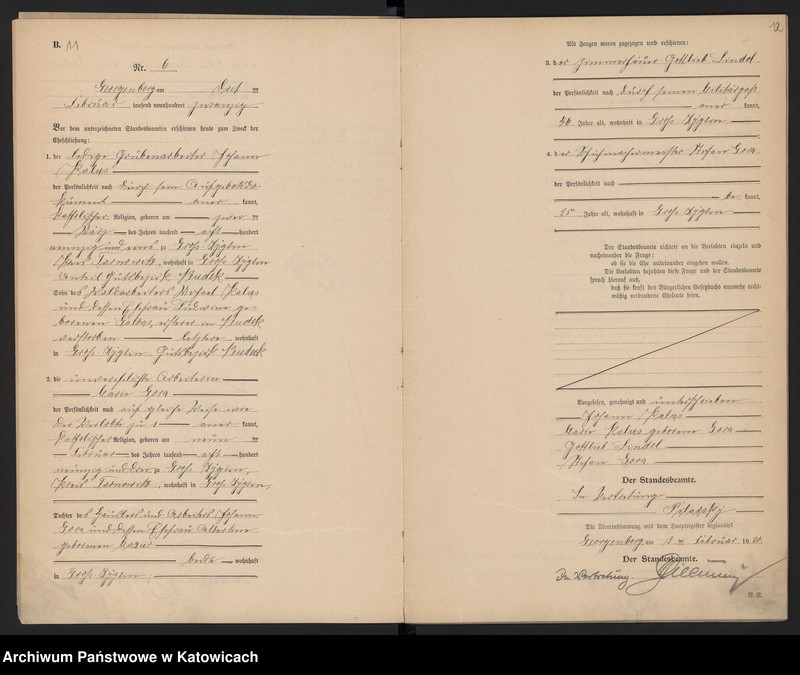 B. 11
Nr. 6
Georgenberg am
Februar tausend neunhundert zwanzig
Vor dem unterzeichneten Standesbeamten erschienen heute zum Zweck der
Eheschließung:
1. der ledige Grubenarbeiter Johann
Kalus
der Persönlichkeit nach durch sein Aufgebotsdo-
kument kannt,
katholischer Religion, geboren am
März des Jahres tausend acht hundert
neunzig und eins zu Groß Zyglin
Kreis Tarnowitz, wohnhaft in Groß Zyglin
Anteil Gutsbezirk Neudek
Sohn des Waldarbeiters Kalus
und dessen Ehefrau Ludwine ge-
borenen ersterer in Neudek
verstorben letztere wohnhaft
in Groß Zyglin Gutsbezirk Neudek
2. die unverehelichte Arbeiterin
Marie Gora
der Persönlichkeit nach auf gleiche Weise wie
der Verlobte zu 1 kannt,
katholischer Religion, geboren am neun
Februar des Jahres tausend acht hundert
neunzig und zu Groß Zyglin,
Kreis Tarnowitz, wohnhaft in Groß Zyglin,
Tochter des Häuslers und Arbeiters Johann
Gora und dessen Ehefrau Albertine
geborenen
beide wohnhaft
in Groß Zyglin.
12
Als Zeugen waren zugezogen und erschienen:
3. der Zimmerhäuer Gottlieb Lindel
der Persönlichkeit nach durch seinen Militärpaß
kannt,
Jahre alt, wohnhaft in Groß Zyglin
4. der Schuhmachermeister Stefan Gora
der Persönlichkeit nach
be kannt,
25 Jahre alt, wohnhaft in Groß Zyglin
Der Standesbeamte richtete an die Verlobten einzeln und
nacheinander die Frage:
ob sie die Ehe miteinander eingehen wollen.
Die Verlobten bejahten diese Frage und der Standesbeamte
sprach hierauf aus,
daß sie kraft des Bürgerlichen Gesetzbuchs nunmehr recht-
mäßig verbundene Eheleute seien.
Vorgelesen, genehmigt und unterschrieben
Johann Kalus
Marie Kalus geborene Gora
Gottlieb Lindel
Stefan Gora
Der Standesbeamte.
In Vertretung
Die Übereinstimmung mit dem Hauptregister beglaubigt
Georgenberg, am Februar 1920.
Der Standesbeamte.
In Vertretung.
Archiwum Państwowe w Katowicach